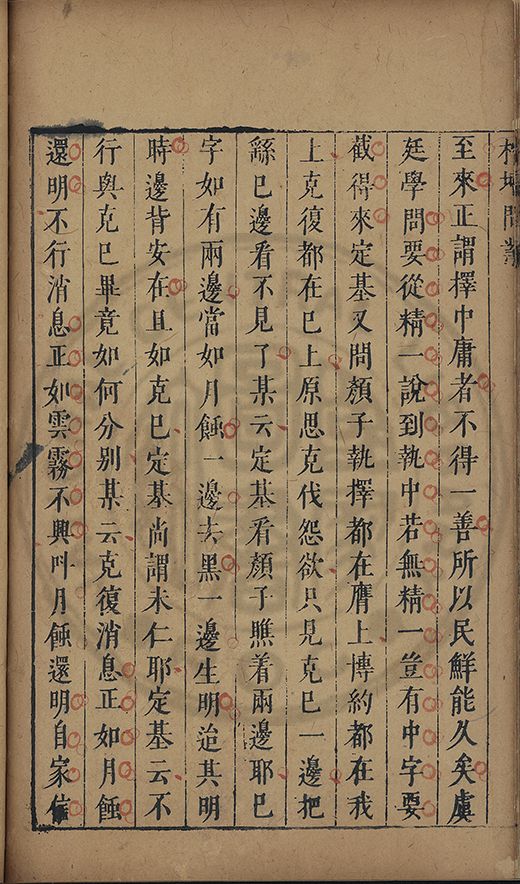 榕壇問業
至來正謂擇中庸者不得一善所以民鮮能久矣虞
廷學問要從精一說到執中若無精一豈有中字要
截得來定基又問顏子執擇都在膺上博約都在我
上克復都在已上原思克伐怨欲只見克已一邊把
繇已邊看不見了某云定基看顏子瞧着兩邊耶已
字如有兩邊當如月蝕一邊去黑一邊生明迨其明
時邊背安在且如克已定基尚謂未仁耶定基云不
行與克已畢竟如何分别某云克復消息正如月蝕
還明不行消息正如雲霧不興叶月蝕還明自家信